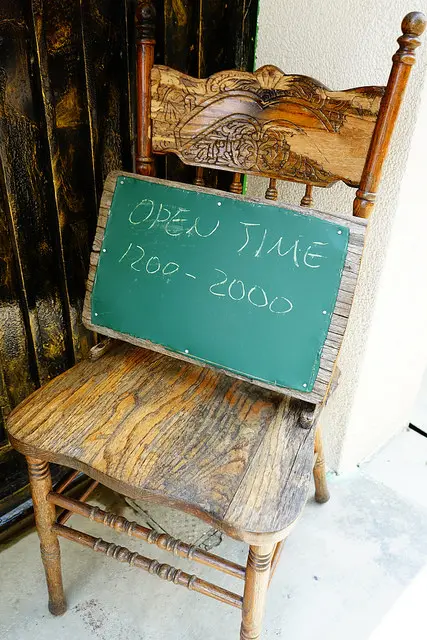 OPEN TIME
1200-2000